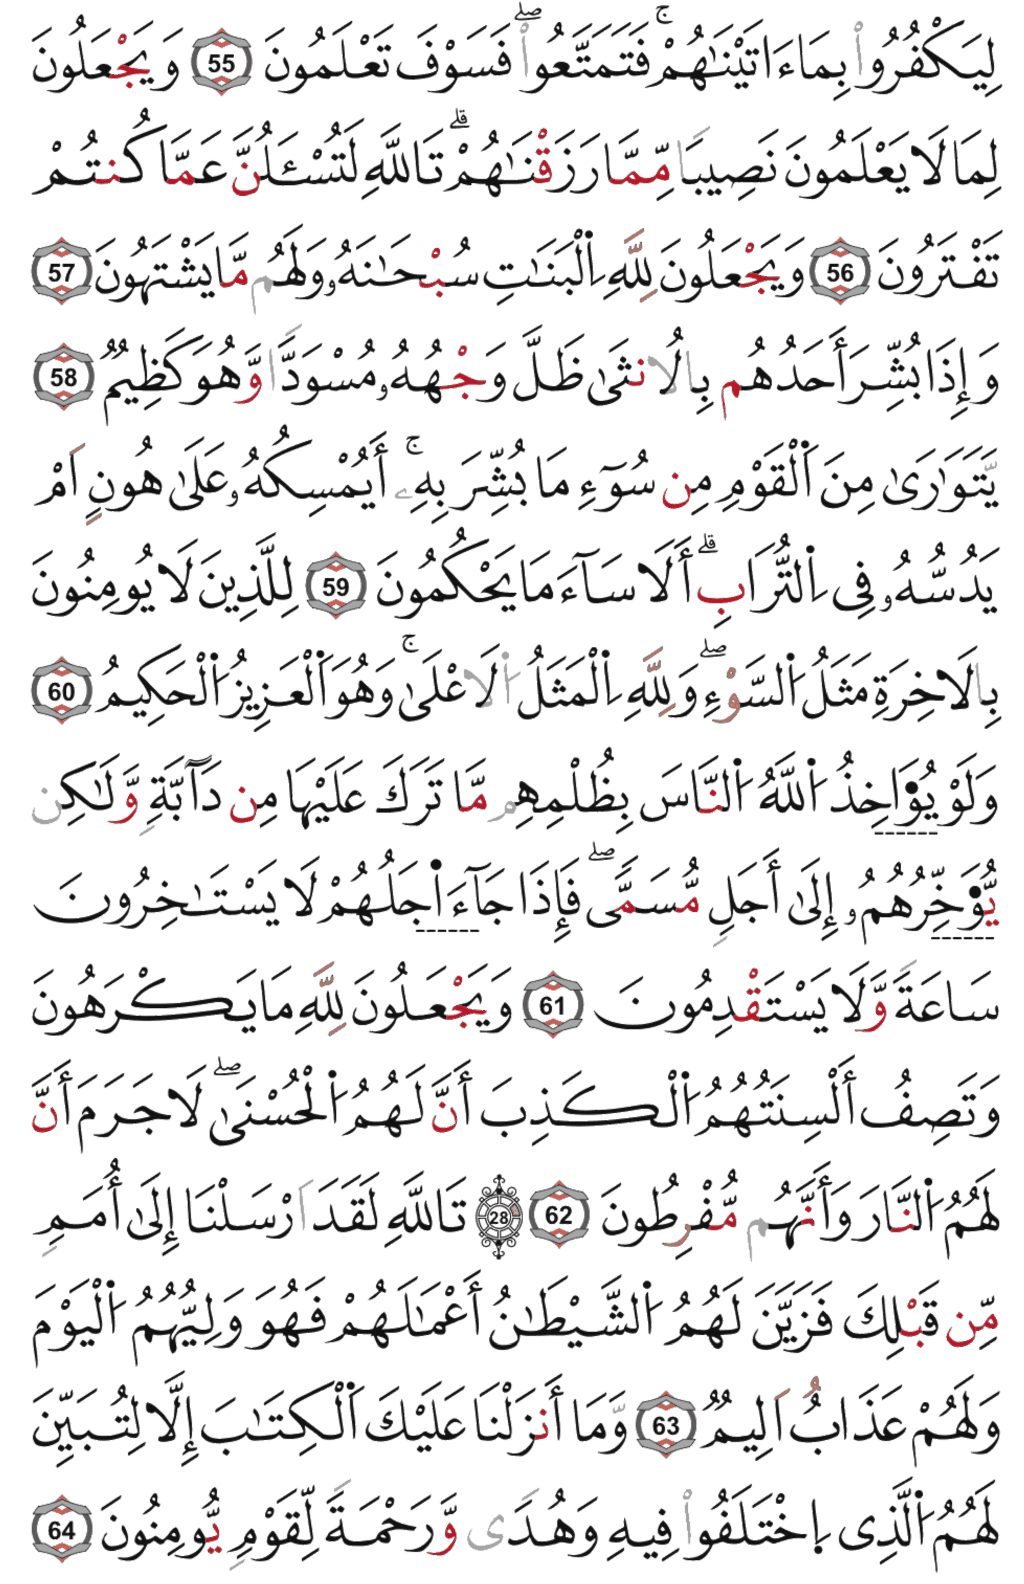 لِيَكْفُرُواْ بِمَا ءَاتَيْنَٰهُمْۚ فَتَمَتَّعُواْۖ فَسَوْفَ تَعْلَمُونَ 55 وَيَجْعَلُونَ
لِمَا لَا يَعْلَمُونَ نَصِيبًا مِّمَّا رَزَقْنَٰهُمْۗ تَاللَّهِ لَتُسْـَٔلُنَّ عَمَّا كُنتُمْ
تَفْتَرُونَ 56 وَيَجْعَلُونَ لِلَّهِ اِ۬لْبَنَٰتِ سُبْحَٰنَهُۥ وَلَهُم مَّا يَشْتَهُونَ 57
وَإِذَا بُشِّرَ أَحَدُهُم بِالُانثَىٰ ظَلَّ وَجْهُهُۥ مُسْوَدًّا وَّهُوَ كَظِيمٌ 58
يَّتَوَٰرَىٰ مِنَ اَ۬لْقَوْمِ مِن سُوٓءِ مَا بُشِّرَ بِهِۦۚ أَيُمْسِكُهُۥ عَلَىٰ هُونٍ اَمْ
يَدُسُّهُۥ فِى اِ۬لتُّرَابِۗ أَلَا سَآءَ مَا يَحْكُمُونَ 59 لِلَّذِينَ لَا يُومِنُونَ
بِالَاخِرَةِ مَثَلُ اُ۬لسَّوْءِۖ وَلِلَّهِ اِ۬لْمَثَلُ اُ۬لَاعْلَىٰۚ وَهُوَ اَ۬لْعَزِيزُ اُ۬لْحَكِيمُ 60
وَلَوْ يُوَ۬اخِذُ اُ۬للَّهُ اُ۬لنَّاسَ بِظُلْمِهِم مَّا تَرَكَ عَلَيْهَا مِن دَآبَّةٍ وَّلَٰكِن
يُّوَ۬خِّرُهُمُۥٓ إِلَىٰ أَجَلٍ مُّسَمًّىۖ فَإِذَا جَآءَ اجَلُهُمْ لَا يَسْتَٰخِرُونَ
سَاعَةً وَّلَا يَسْتَقْدِمُونَ 61 وَيَجْعَلُونَ لِلَّهِ مَا يَكْرَهُونَ
وَتَصِفُ أَلْسِنَتُهُمُ اُ۬لْكَذِبَ أَنَّ لَهُمُ اُ۬لْحُسْنَىٰۖ لَا جَرَمَ أَنَّ
لَهُمُ اُ۬لنَّارَ وَأَنَّهُم مُّفْرِطُونَ 62 28 تَاللَّهِ لَقَدَ اَرْسَلْنَا إِلَىٰ أُمَمٍ
مِّن قَبْلِكَ فَزَيَّنَ لَهُمُ اُ۬لشَّيْطَٰنُ أَعْمَٰلَهُمْ فَهُوَ وَلِيُّهُمُ اُ۬لْيَوْمَ
وَلَهُمْ عَذَابٌ اَلِيمٌ 63 وَّمَا أَنزَلْنَا عَلَيْكَ اَ۬لْكِتَٰبَ إِلَّا لِتُبَيِّنَ
لَهُمُ اُ۬لَّذِى اِ۪خْتَلَفُواْ فِيهِ وَهُدًى وَّرَحْمَةً لِّقَوْمٍ يُّومِنُونَ 64